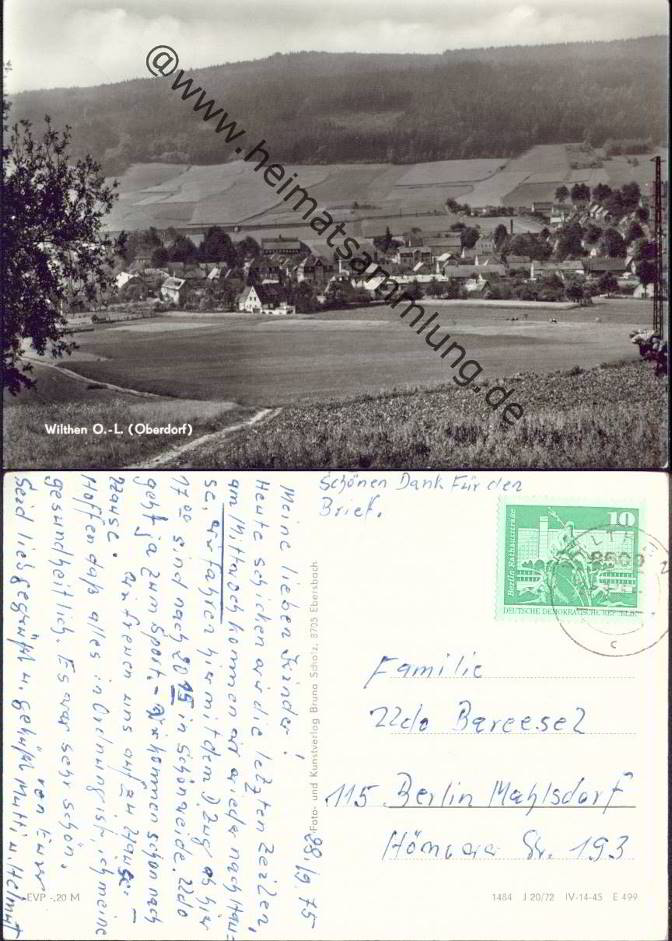 @www.heimatsammlung.de
Wilthen O.-L. (Oberdorf)
Schönen Dank Für den
Brief.
28.9.75
Meine lieben Kinder!
Heute schicken wir die letzten Zeilen,
am Mittwoch kommen wir wieder nach Hau=
se, wir fahren hier mit dem D.Zug ab hier
17⁰⁰ sind nach 20¹⁵ in Schönweide. Udo
geht ja zum Sport. – Wir kommen schon nach
Hause. Wir freuen uns auf zu Hause –
Hoffen daß alles in Ordnung ist, ich meine
gesundheitlich. Es war sehr schön.
Seid lieb gegrüßt u. geküßt Mutti u. Helmut
Foto- und Kunstverlag Bruno Scholz, 8705 Ebersbach
10
Berlin Rathausstraße
DEUTSCHE DEMOKRATISCHE REPUBLIK
c
Familie
Udo
115 Berlin Mahlsdorf
Str. 193
EVP -,20 M
1484 J 20/72 IV-14-45 E 499